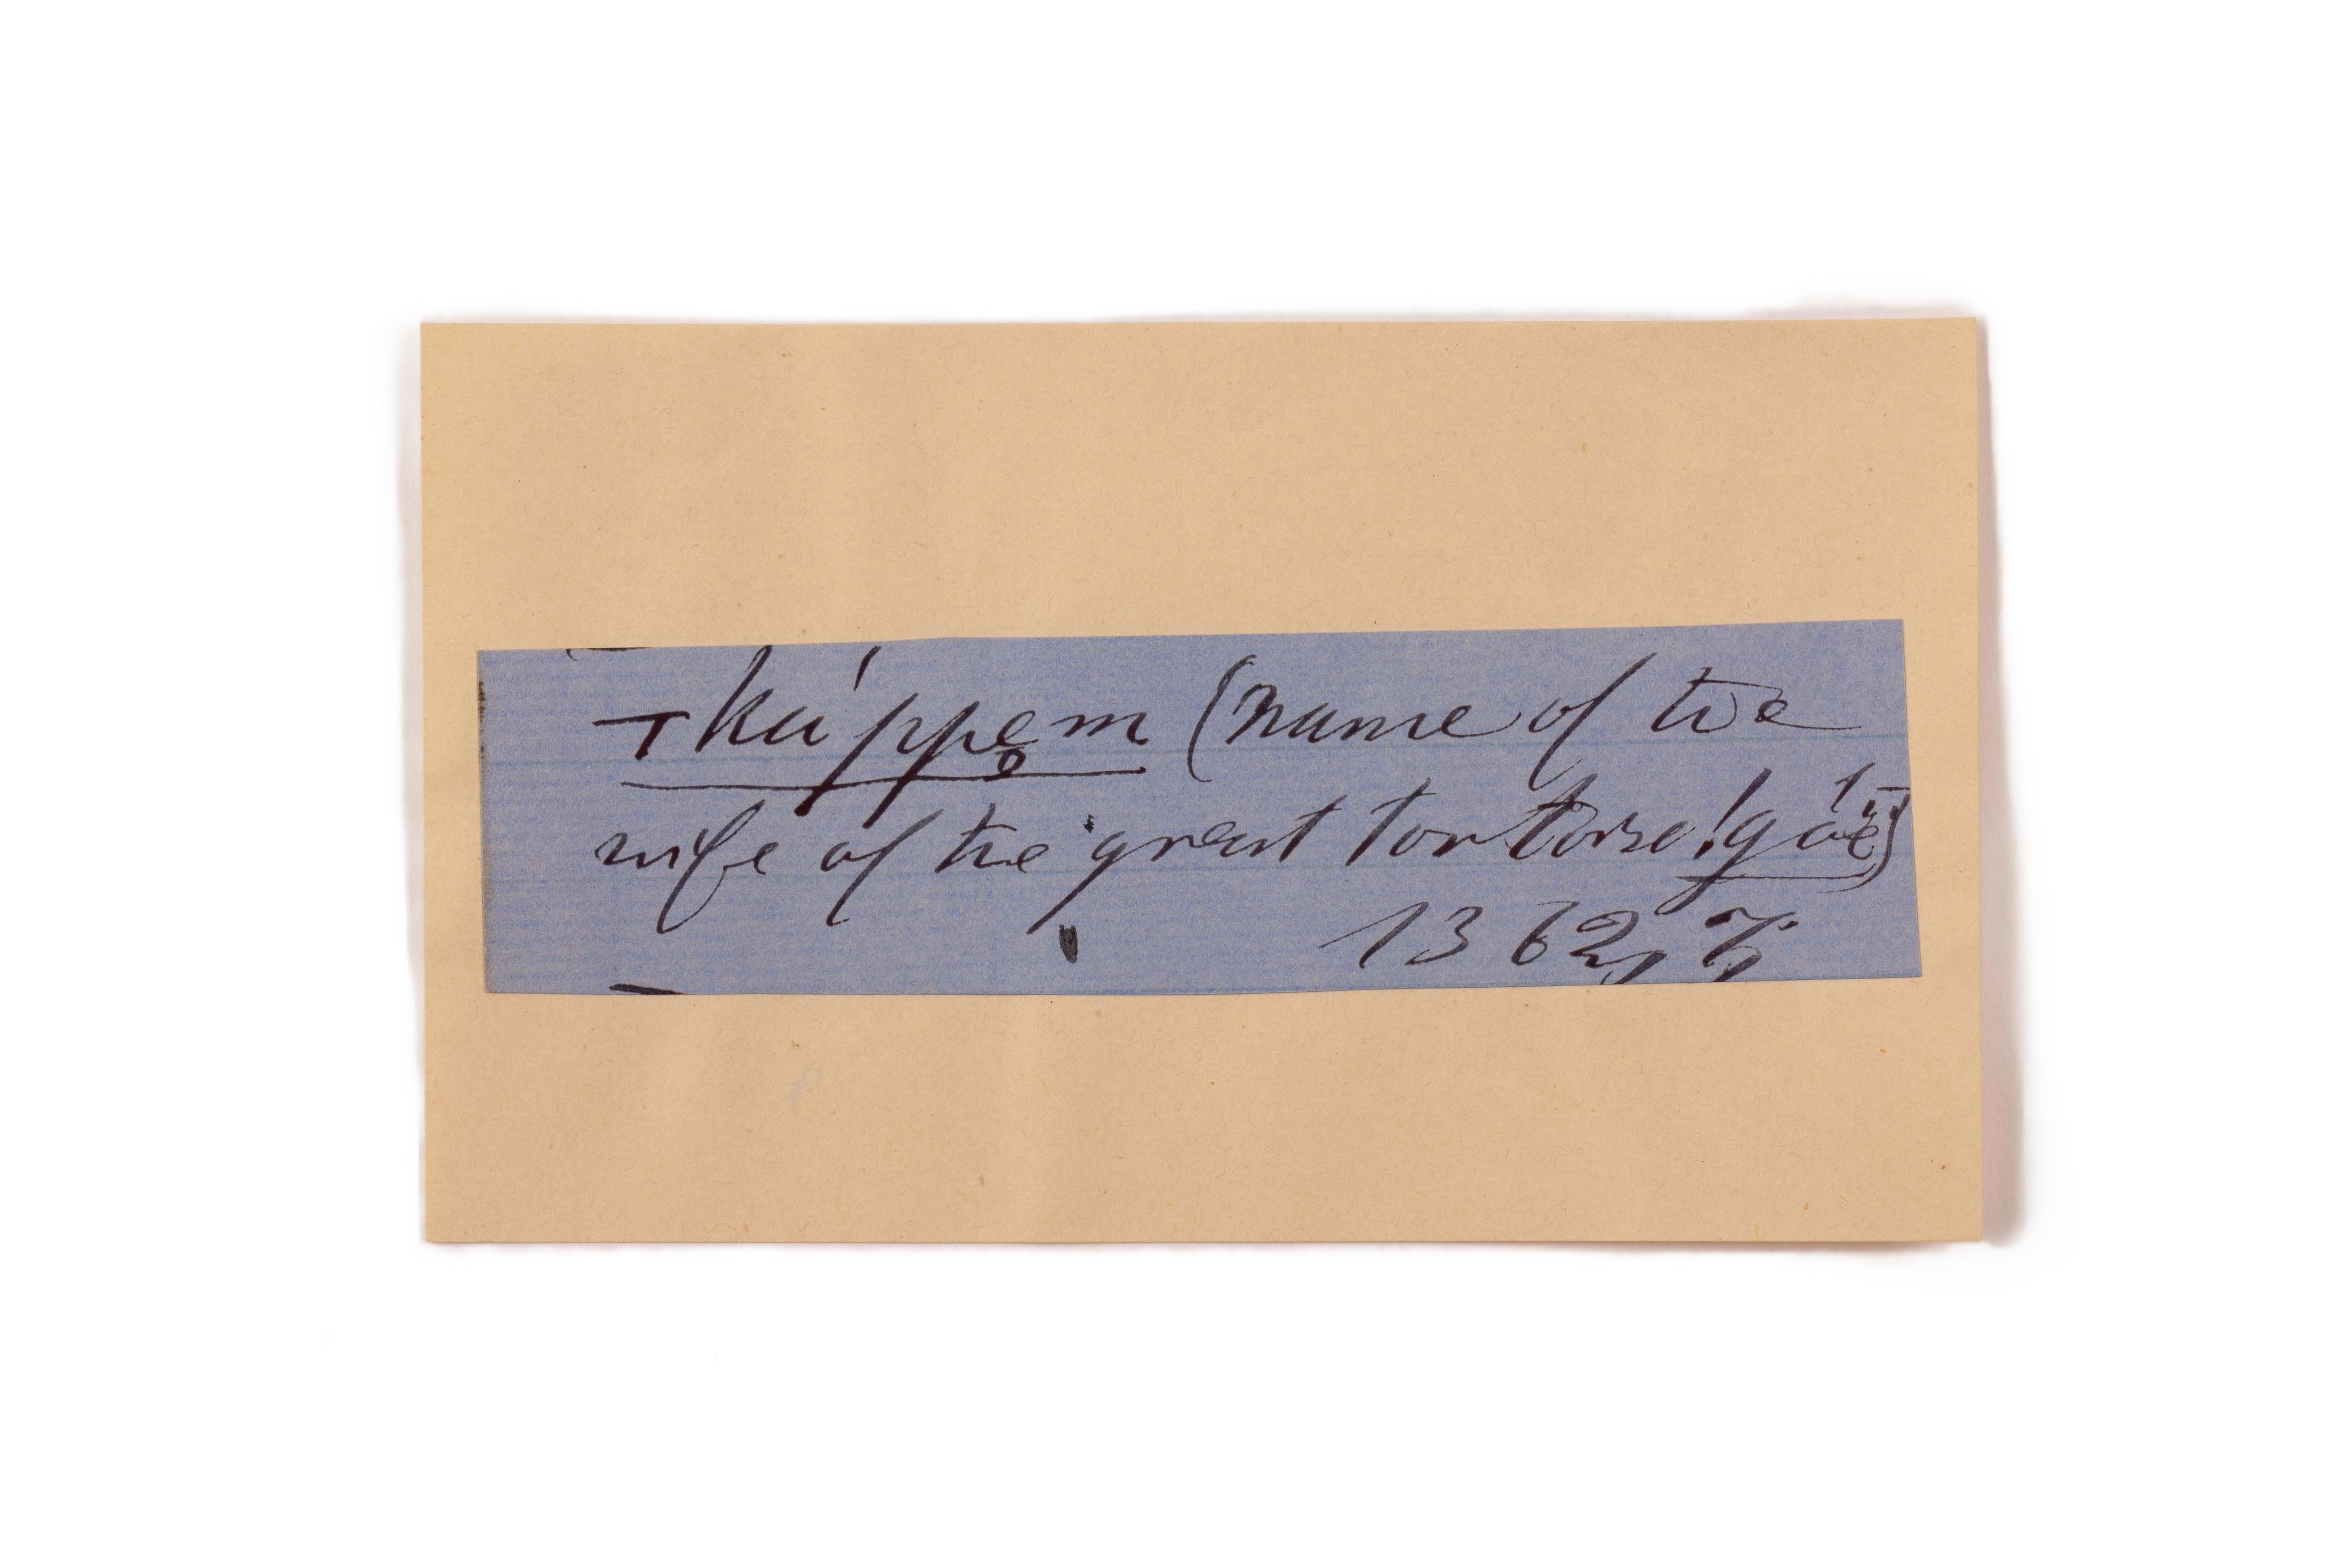 ⊤ká'ppem̥ (name of the
wife of the great tortoise !góë)
1362,